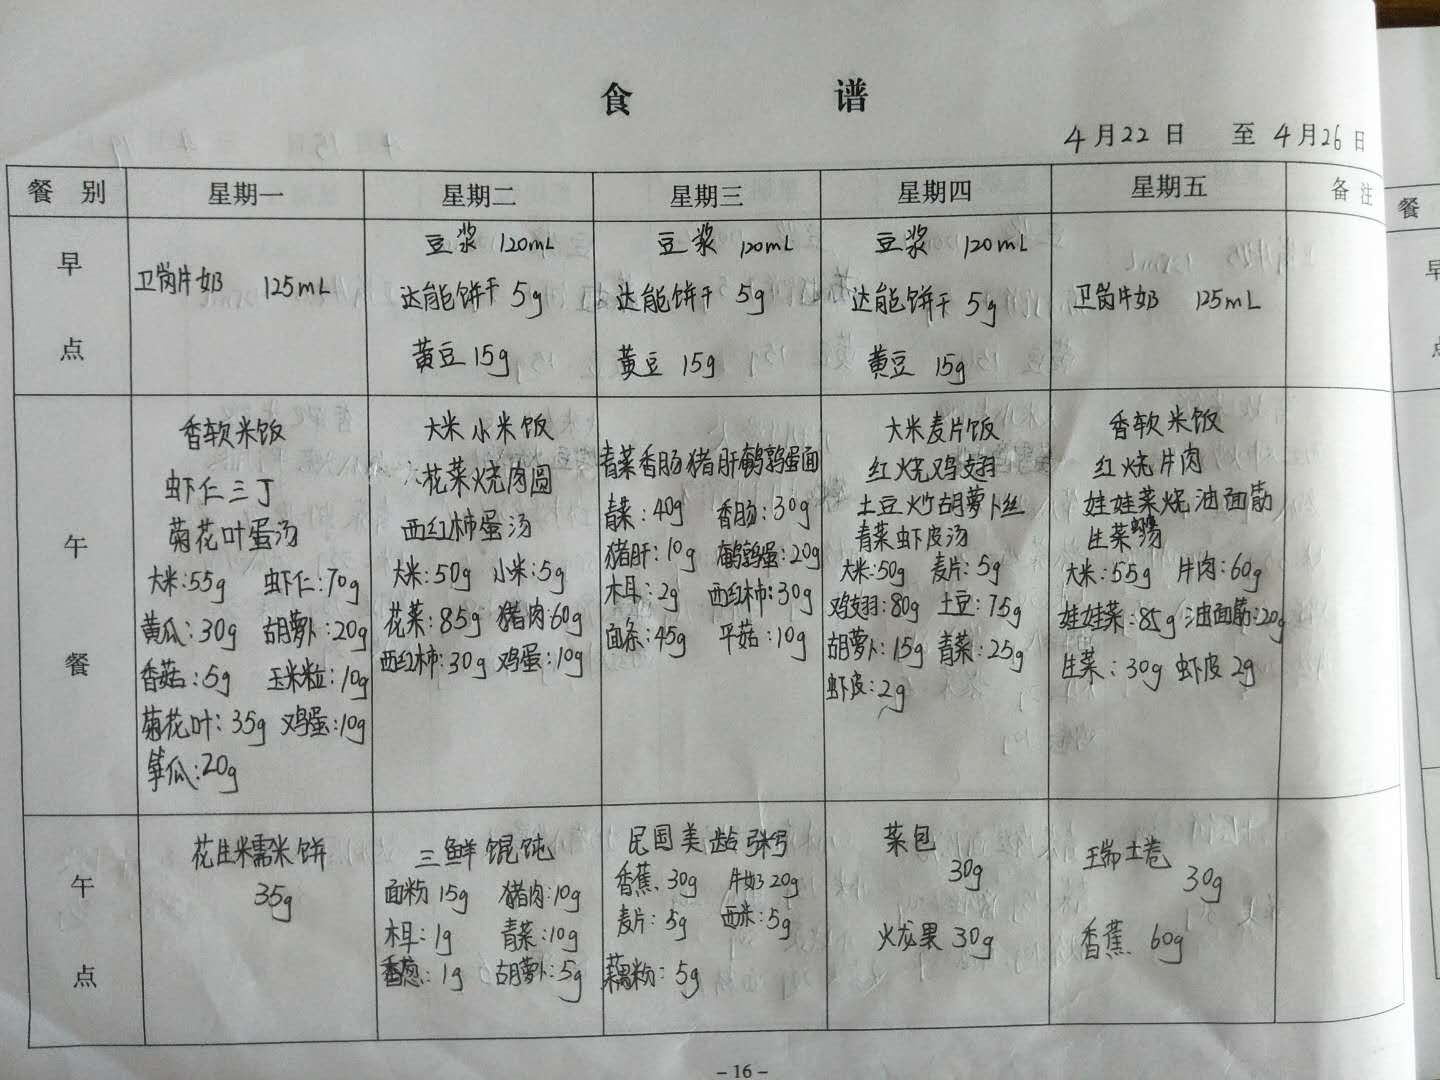 食 谱
4月22日 至 4月26日
餐 别 星期一 星期二 星期三 星期四 星期五 备 注
早 点
卫岗牛奶 125mL
豆浆 120mL
达能饼干 5g
黄豆 15g
豆浆 120mL
达能饼干 5g
黄豆 15g
豆浆 120mL
达能饼干 5g
黄豆 15g
卫岗牛奶 125mL
午 餐
香软米饭
虾仁三丁
菊花叶蛋汤
大米:55g 虾仁:70g
黄瓜:30g 胡萝卜:20g
香菇:5g 玉米粒:10g
菊花叶:35g 鸡蛋:10g
瓜:20g
大米小米饭
花菜烧肉圆
西红柿蛋汤
大米:50g 小米:5g
花菜:85g 猪肉60g
西红柿:30g 鸡蛋:10g
青菜香肠猪肝鹌鹑蛋面
青菜:40g 香肠:30g
猪肝:10g 鹌鹑蛋:20g
木耳:2g 西红柿:30g
面条:45g 平菇:10g
大米麦片饭
红烧鸡翅
土豆炒胡萝卜丝
青菜虾皮汤
大米:50g 麦片:5g
鸡翅:80g 土豆:75g
胡萝卜:15g 青菜:25g
虾皮:2g
香软米饭
红烧牛肉
娃娃菜烧油面筋
生菜汤
大米:55g 牛肉:60g
娃娃菜:85g 油面筋:20g
生菜:30g 虾皮2g
午 点
花生糯米饼
35g
三鲜馄饨
面粉15g 猪肉:10g
木耳:1g 青菜:10g
香葱:1g 胡萝卜:5g
民国美龄粥
香蕉30g 牛奶20g
麦片:5g 西米:5g
藕粉:5g
菜包
30g
火龙果 30g
瑞士卷
30g
香蕉 60g
- 16 -
餐
早